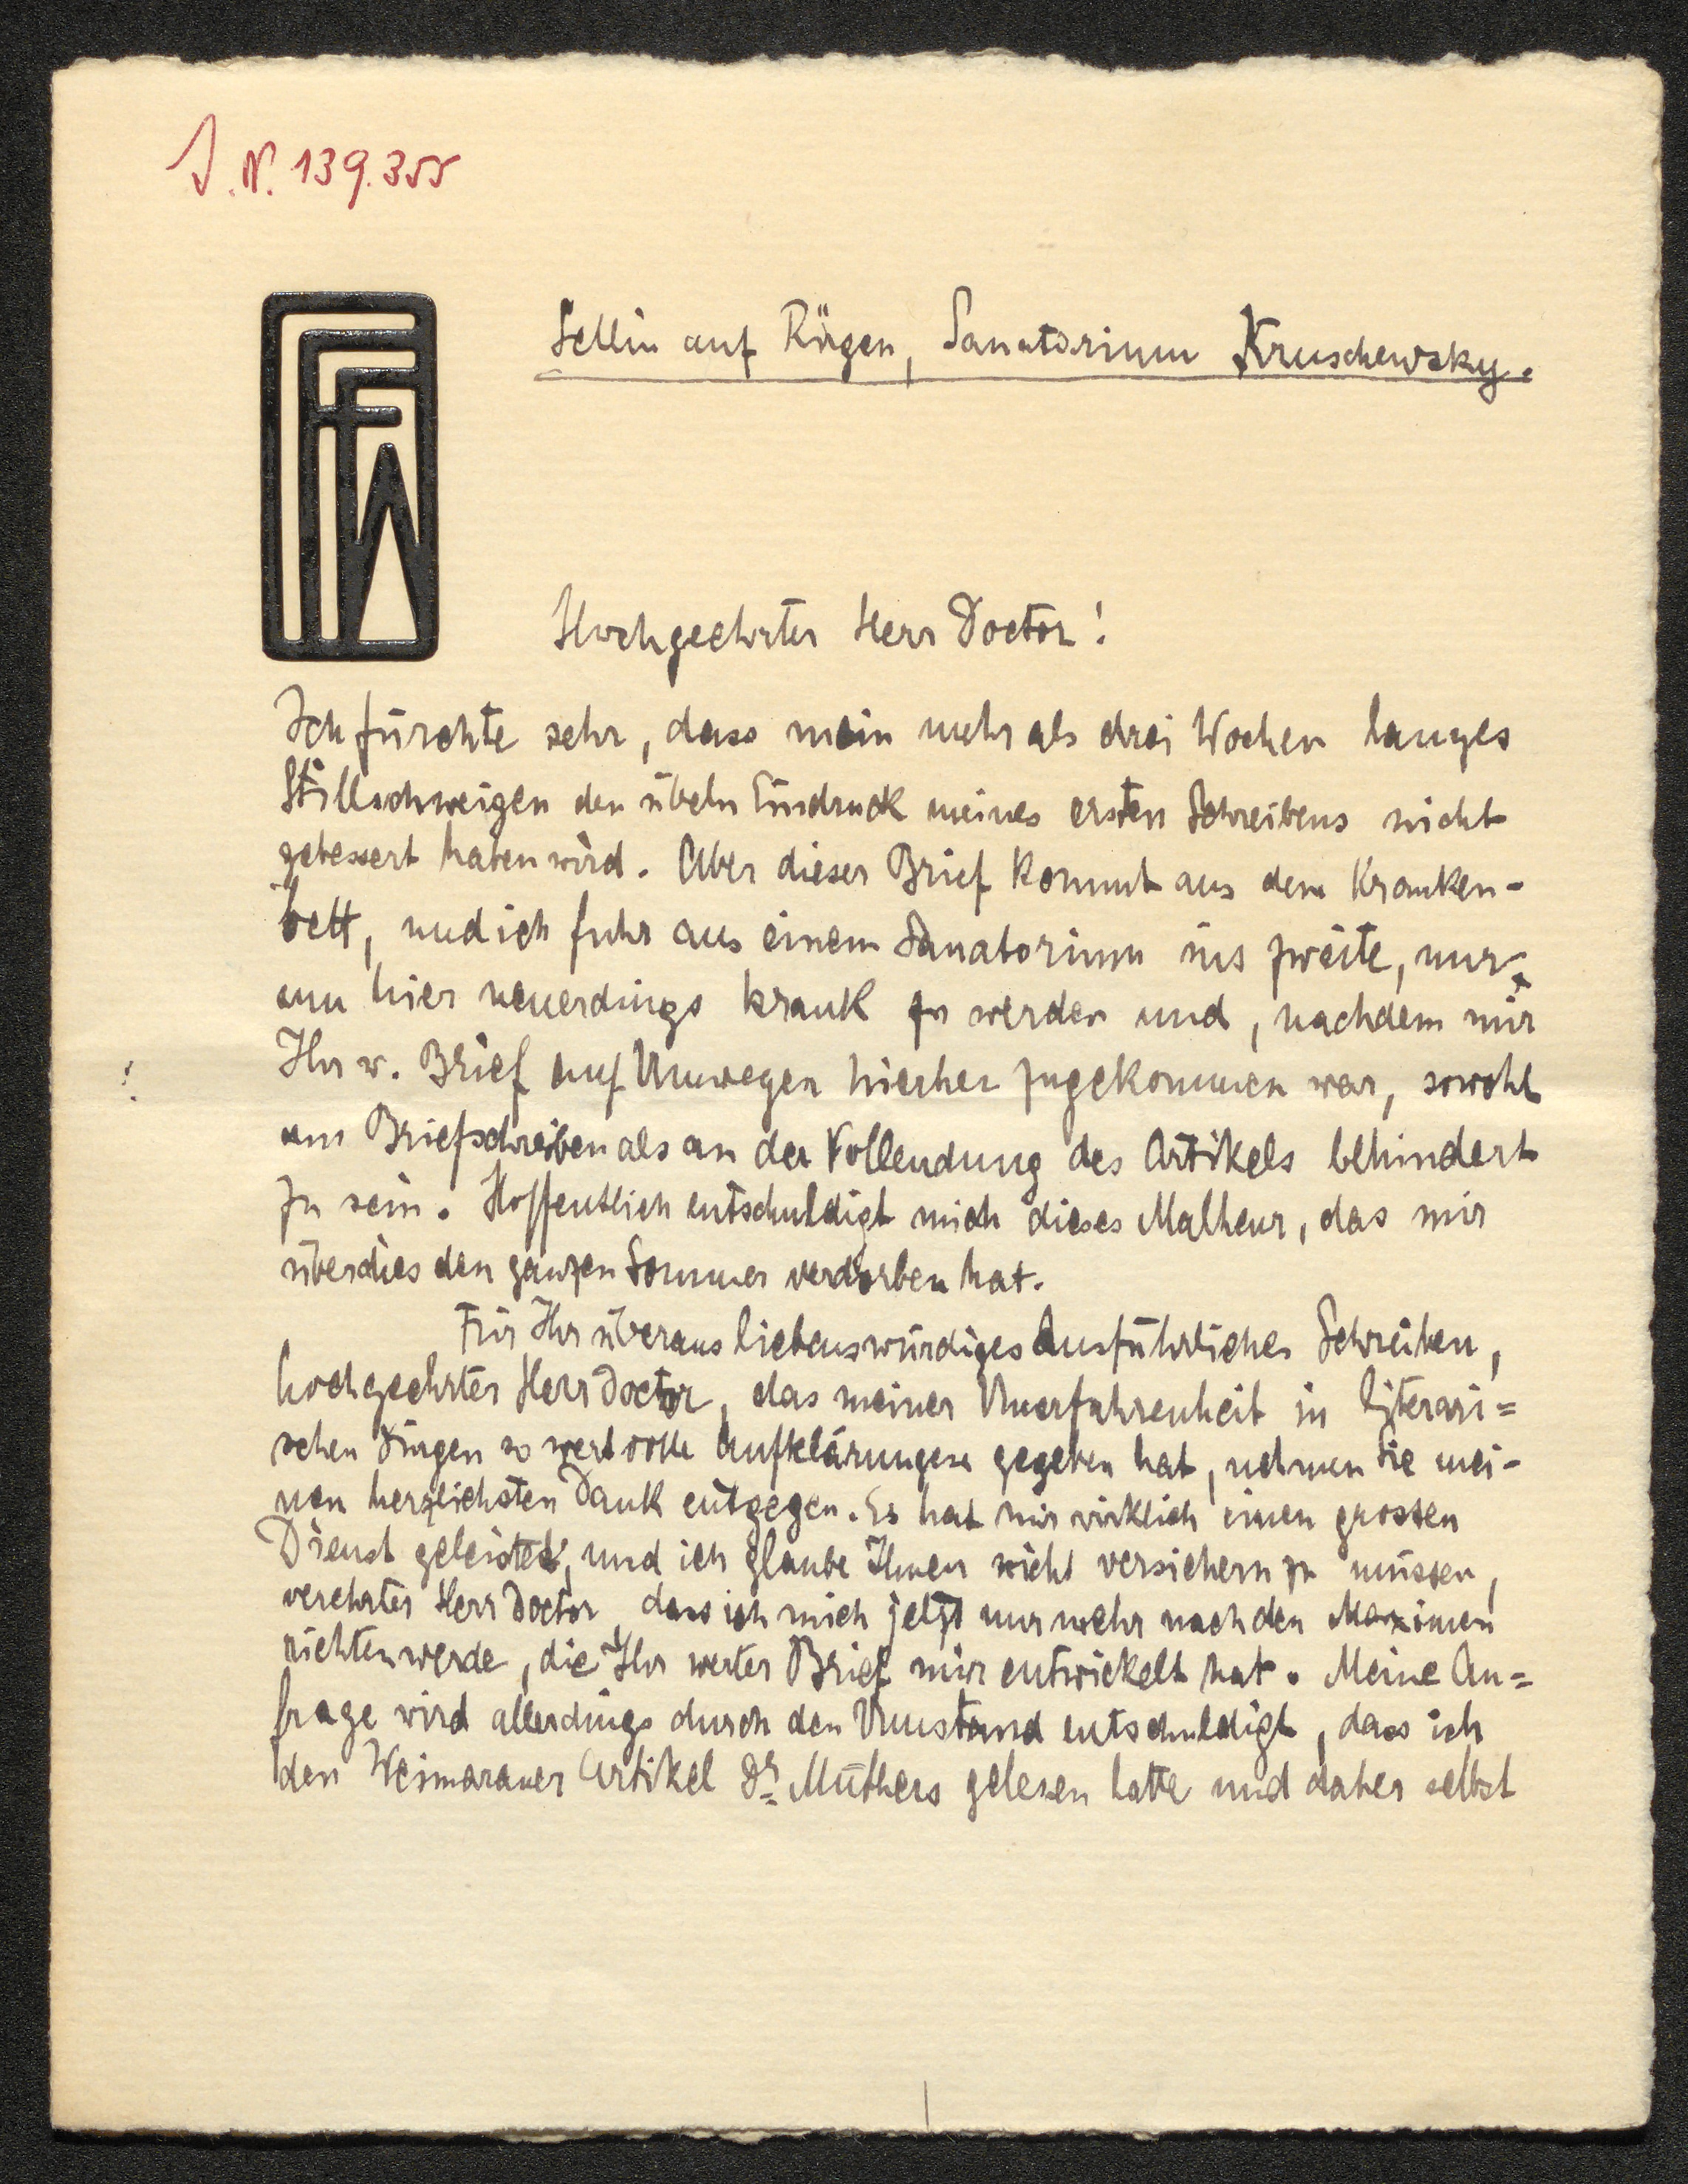 J. N. 139.355
FFW
Sellin auf Rügen, Sanatorium Kruschewsky.
Hochgeehrter Herr Doctor!
Ich fürchte sehr, dass mein mehr als drei Wochen langes
Stillschweigen den übeln Eindruck meines ersten Schreibens nicht
gebessert haben wird. Aber dieser Brief kommt aus dem Kranken-
bett, und ich fuhr aus einem Sanatorium ins zweite, nur
um hier neuerdings krank zu werden und, nachdem mir
Ihr w. Brief auf Umwegen hierher zugekommen war, sowohl
am Briefschreiben als an der Vollendung des Artikels behindert
zu sein. Hoffentlich entschuldigt mich dieses Malheur, das mir
überdies den ganzen Sommer verdorben hat.
Für Ihr überaus liebenswürdiges ausführliches Schreiben,
hochgeehrter Herr Doctor, das meiner Unerfahrenheit in literari=
schen Dingen so wertvolle Aufklärungen gegeben hat, nehmen Sie mei-
nen herzlichsten Dank entgegen. Es hat mir wirklich einen grossen
Dienst geleistet, und ich glaube Ihnen nicht versichern zu müssen,
verehrter Herr Doctor, dass ich mich jetzt nur mehr nach den Maximen
richten werde, die Ihr werter Brief mir entwickelt hat. Meine An=
frage wird allerdings durch den Umstand entschuldigt, dass ich
den Weimaraner Artikel Dr. Muthers gelesen hatte und daher selbst